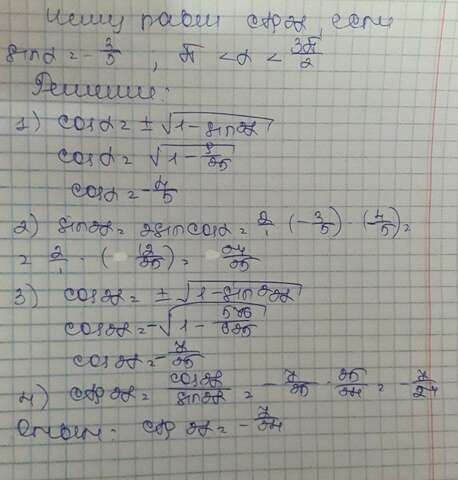 Чему равен ctg 2α, если
sin α = -3/5, π < α < 3π/2
Решение:
1) cos α = ± √(1 - sin²α)
cos α = √(1 - 9/25)
cos α = -4/5
2) sin 2α = 2 sin cos α = 2/1 · (-3/5) · (4/5) =
= 2/1 · (- 12/25) = 24/25
3) cos 2α = ± √(1 - sin²2α)
cos 2α = - √(1 - 576/625)
cos 2α = - 7/25
4) ctg 2α = cos 2α / sin 2α = - 7/25 · 25/24 = - 7/24
Ответ: ctg 2α = - 7/24